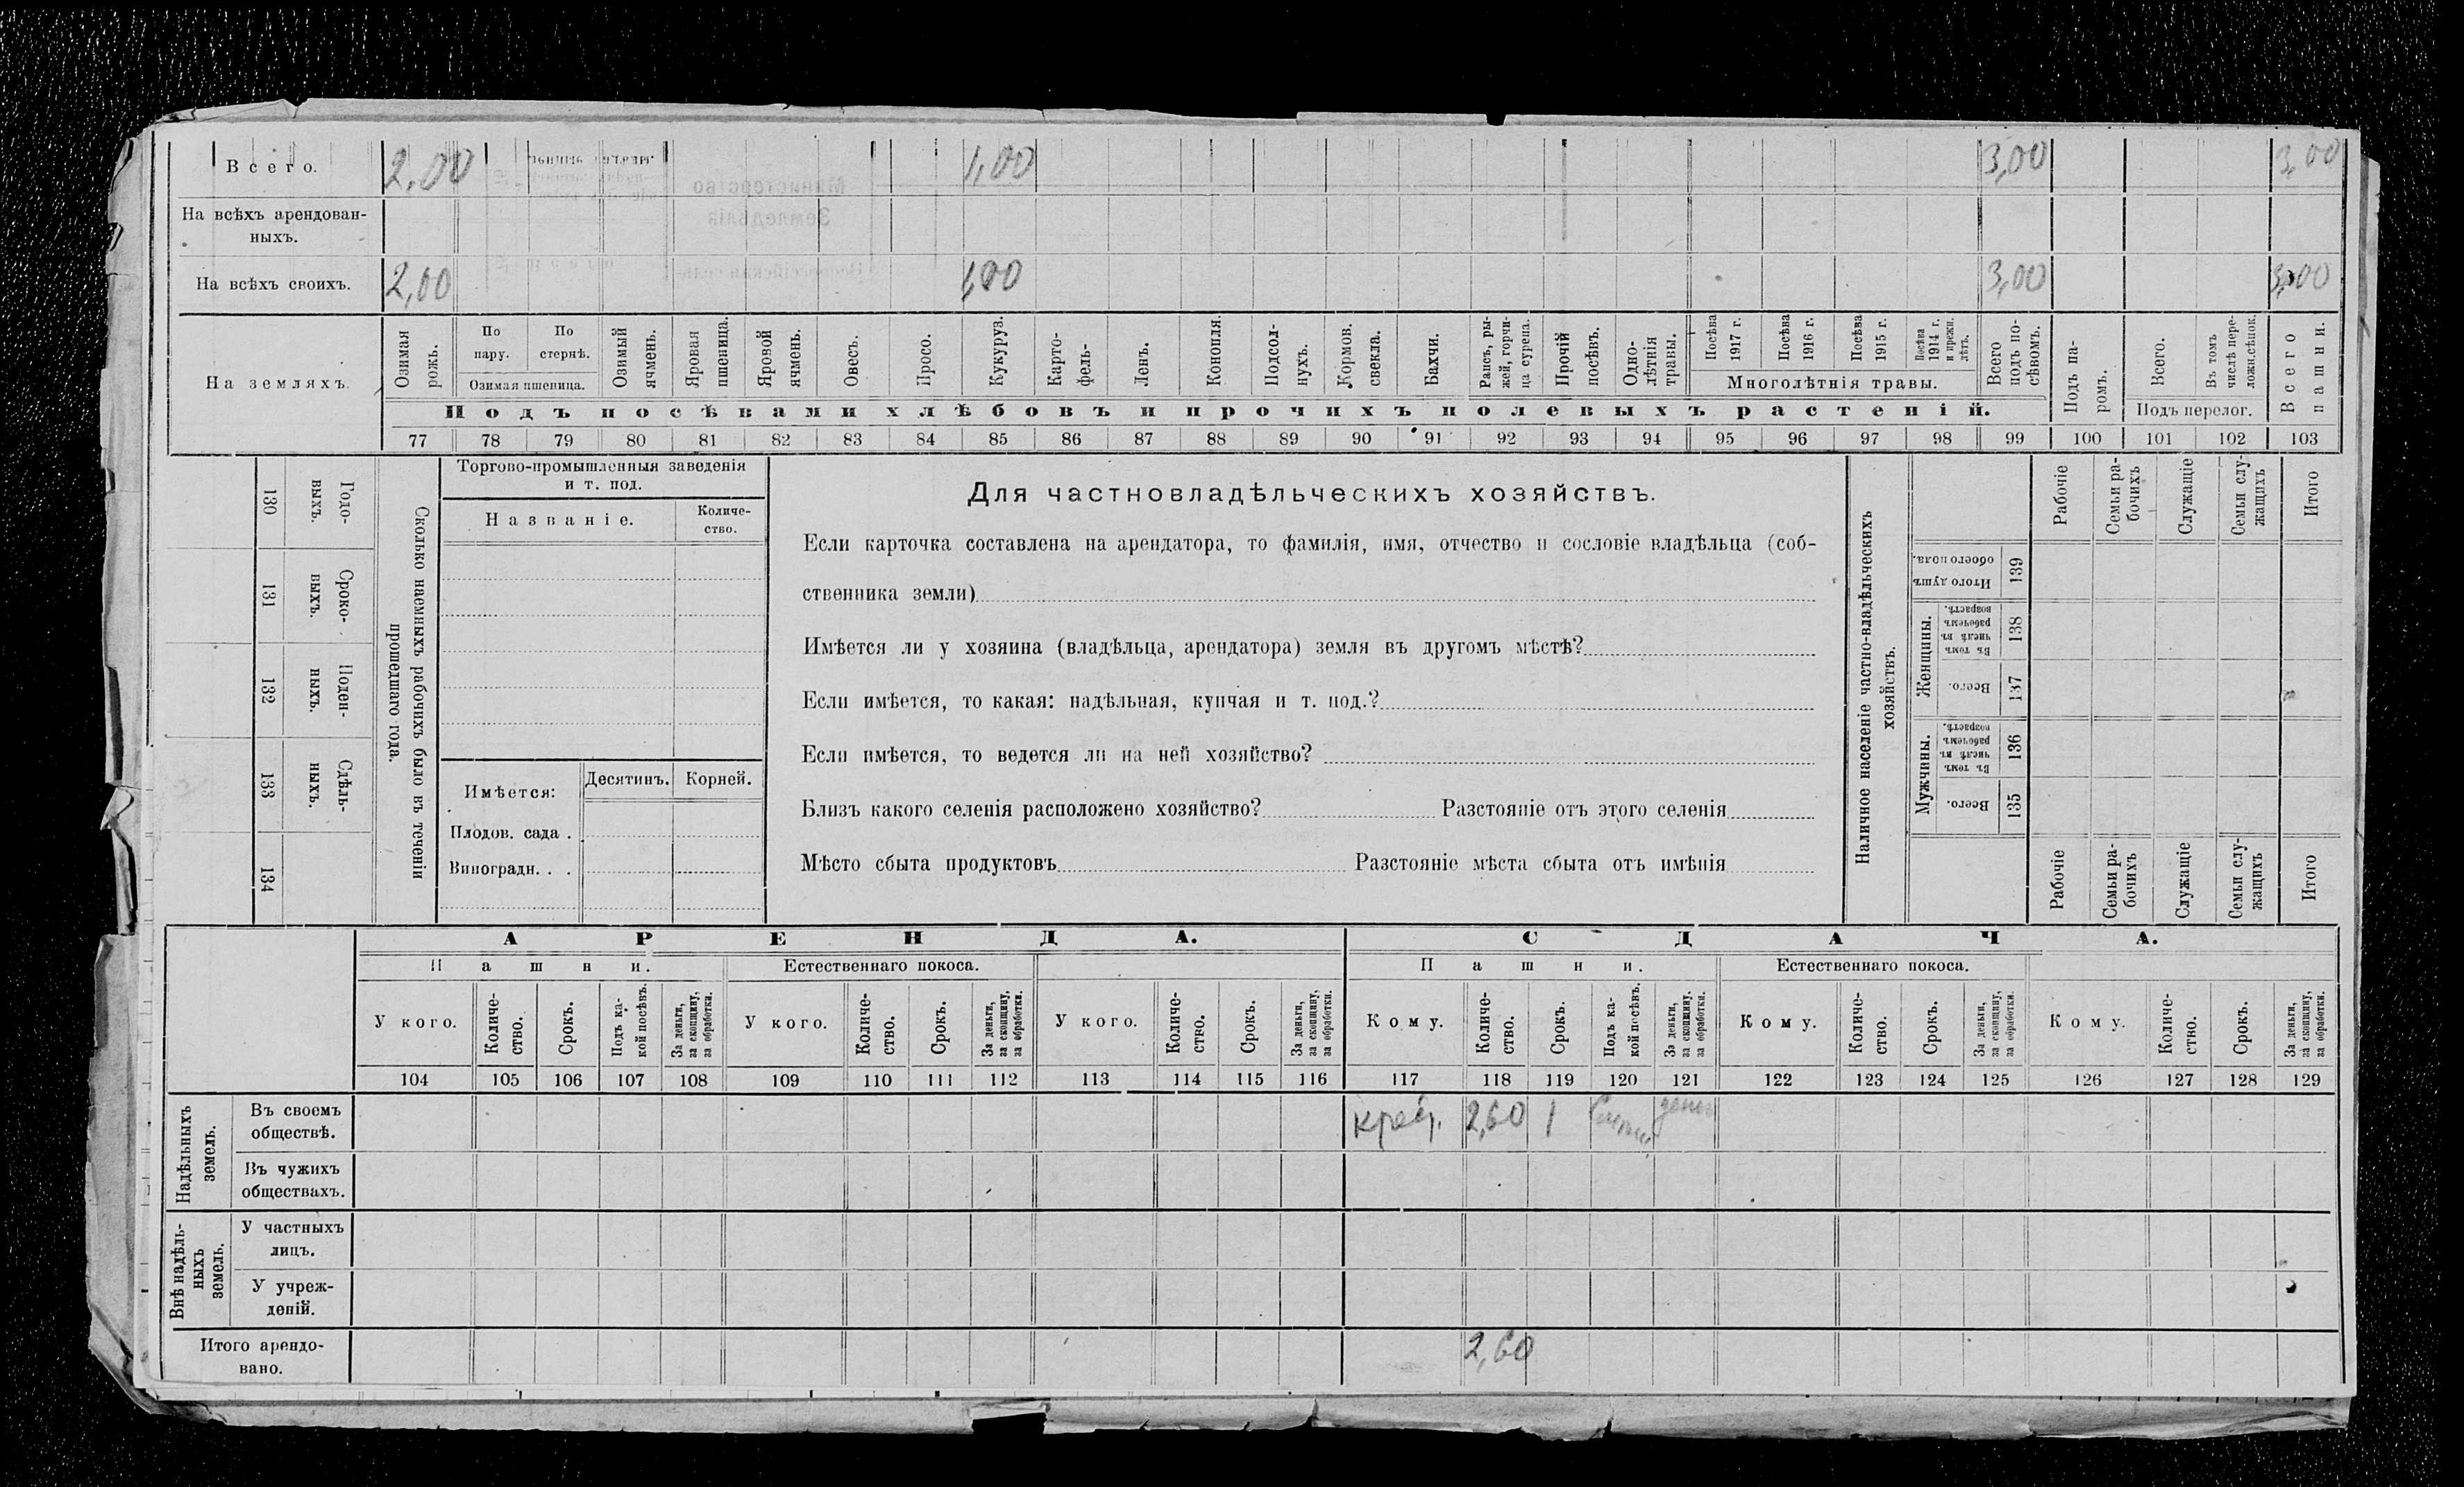 Всего. 2,00 1,00 3,00 3,00
На всѣхъ арендован-
ныхъ.
На всѣхъ своихъ. 2,00 1,00 3,00 3,00
На земляхъ.
Озимая рожь.
По пару.
По стернѣ.
Озимая пшеница.
Озимый ячмень.
Яровая пшеница.
Яровой ячмень.
Овесъ.
Просо.
Кукуруз.
Карто-
фель-
Ленъ.
Конопля.
Подсол-
нухъ.
Кормов.
свекла.
Бахчи.
Рапсъ, ры-
жей, горчи-
ца сурепа.
Прочій
посѣвъ.
Одно-
лѣтнія
травы.
Посѣва
1917 г.
Посѣва
1916 г.
Посѣва
1915 г.
Посѣва
1914 г.
и прежн.
лѣтъ.
Многолѣтнія травы.
Всего
подъ по-
сѣвомъ.
Подъ па-
ромъ.
Всего.
Въ томъ
числѣ пере-
ложн.сѣнок.
Подъ перелог.
Всего
пашни.
Подъ посѣвами хлѣбовъ и прочихъ полевыхъ растеній.
77 78 79 80 81 82 83 84 85 86 87 88 89 90 91 92 93 94 95 96 97 98 99 100 101 102 103
130
Годо-
выхъ.
131
Сроко-
выхъ.
132
Поден-
ныхъ.
133
Сдѣль-
ныхъ.
134
Сколько наемныхъ рабочихъ было въ теченіи
прошедшаго года.
Торгово-промышленныя заведенія
и т. под.
Названіе.
Количе-
ство.
Имѣется:
Десятинъ.
Корней.
Плодов. сада .
Виноградн. . .
Для частновладѣльческихъ хозяйствъ.
Если карточка составлена на арендатора, то фамилія, имя, отчество и сословіе владѣльца (соб-
ственника земли)
Имѣется ли у хозяина (владѣльца, арендатора) земля въ другомъ мѣстѣ?
Если имѣется, то какая: надѣльная, купчая и т. под.?
Если имѣется, то ведется ли на ней хозяйство?
Близъ какого селенія расположено хозяйство? Разстояніе отъ этого селенія
Мѣсто сбыта продуктовъ Разстояніе мѣста сбыта отъ имѣнія
Наличное населеніе частно-владѣльческихъ
хозяйствъ.
Рабочіе
Семьи ра-
бочихъ
Служащіе
Семьи слу-
жащихъ
Итого
Итого душъ
обоего пола.
139
Женщины.
Въ томъ
числѣ въ
рабочемъ
возрастѣ.
138
Всего.
137
Мужчины.
Въ томъ
числѣ въ
рабочемъ
возрастѣ.
136
Всего.
135
Рабочіе
Семьи ра-
бочихъ
Служащіе
Семьи слу-
жащихъ
Итого
АРЕНДА. СДАЧА.
Пашни. Естественнаго покоса. Пашни. Естественнаго покоса.
У кого.
Количе-
ство.
Срокъ.
Подъ ка-
кой посѣвъ.
За деньги,
за скопщину,
за обработки.
У кого.
Количе-
ство.
Срокъ.
За деньги,
за скопщину,
за обработки.
У кого.
Количе-
ство.
Срокъ.
За деньги,
за скопщину,
за обработки.
Кому.
Количе-
ство.
Срокъ.
Подъ ка-
кой посѣвъ.
За деньги,
за скопщину.
за обработки.
Кому.
Количе-
ство.
Срокъ.
За деньги,
за скопщину,
за обработки.
Кому.
Количе-
ство.
Срокъ.
За деньги,
за скопщину,
за обработки.
104 105 106 107 108 109 110 111 112 113 114 115 116 117 118 119 120 121 122 123 124 125 126 127 128 129
Надѣльныхъ
земель.
Въ своемъ
обществѣ.
2,60 1
Въ чужихъ
обществахъ.
Внѣ надѣль-
ныхъ
земель.
У частныхъ
лицъ.
У учреж-
деній.
Итого арендо-
вано.
2,60